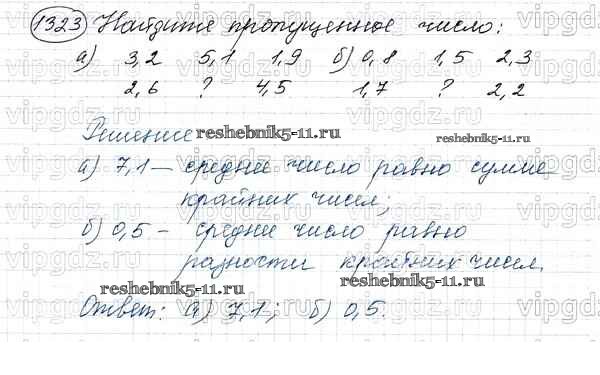 1323 Найдите пропущенное число:
а) 3,2 5,1 1,9 б) 0,8 1,5 2,3
2,6 ? 4,5 1,7 ? 2,2
Решение
reshebnik5-11.ru
reshebnik5-11.ru
а) 7,1 – среднее число равно сумме
крайних чисел;
б) 0,5 – среднее число равно
разности крайних чисел.
reshebnik5-11.ru
reshebnik5-11.ru
Ответ: а) 7,1; б) 0,5.
vipgdz.ru